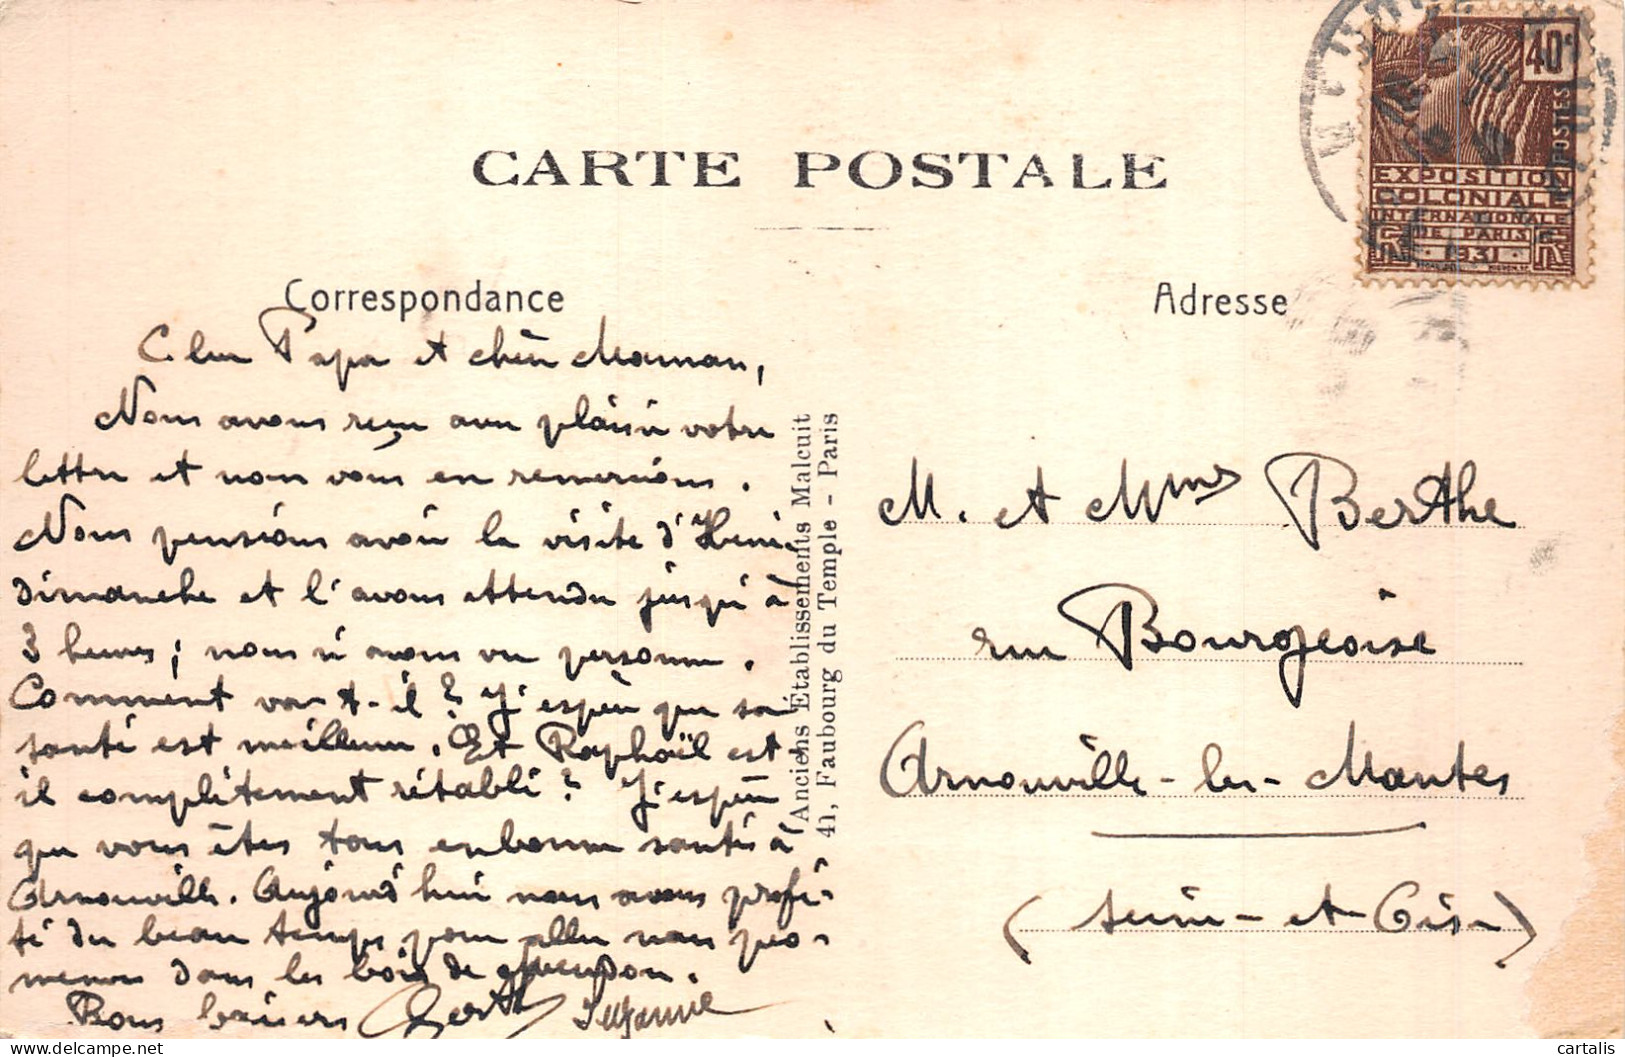 CARTE POSTALE
40c
POSTES
EXPOSITION
COLONIALE
INTERNATIONALE
DE PARIS
1931
Correspondance
Cher Papa et chère Maman,
Nous avons reçu avec plaisir votre
lettre et nous vous en remercions.
Nous pensions avoir la visite d'Henri
dimanche et l'avons attendu jusqu'à
3 heures; nous n'avons vu personne.
Comment va-t-il? J'espère que sa
santé est meilleure. Et Raphaël est
il complètement rétabli? J'espère
que vous êtes tous en bonne santé à
Arnouville. Aujourd'hui nous avons profi-
té du beau temps pour aller nous pro-
mener dans les bois de Meudon.
Bons baisers Berthe Suzanne
Anciens Établissements Malcuit
41, Faubourg du Temple - Paris
Adresse
M. et Mme Berthe
rue Bourgeoise
Arnouville-les-Mantes
(Seine-et-Oise)
cartalis